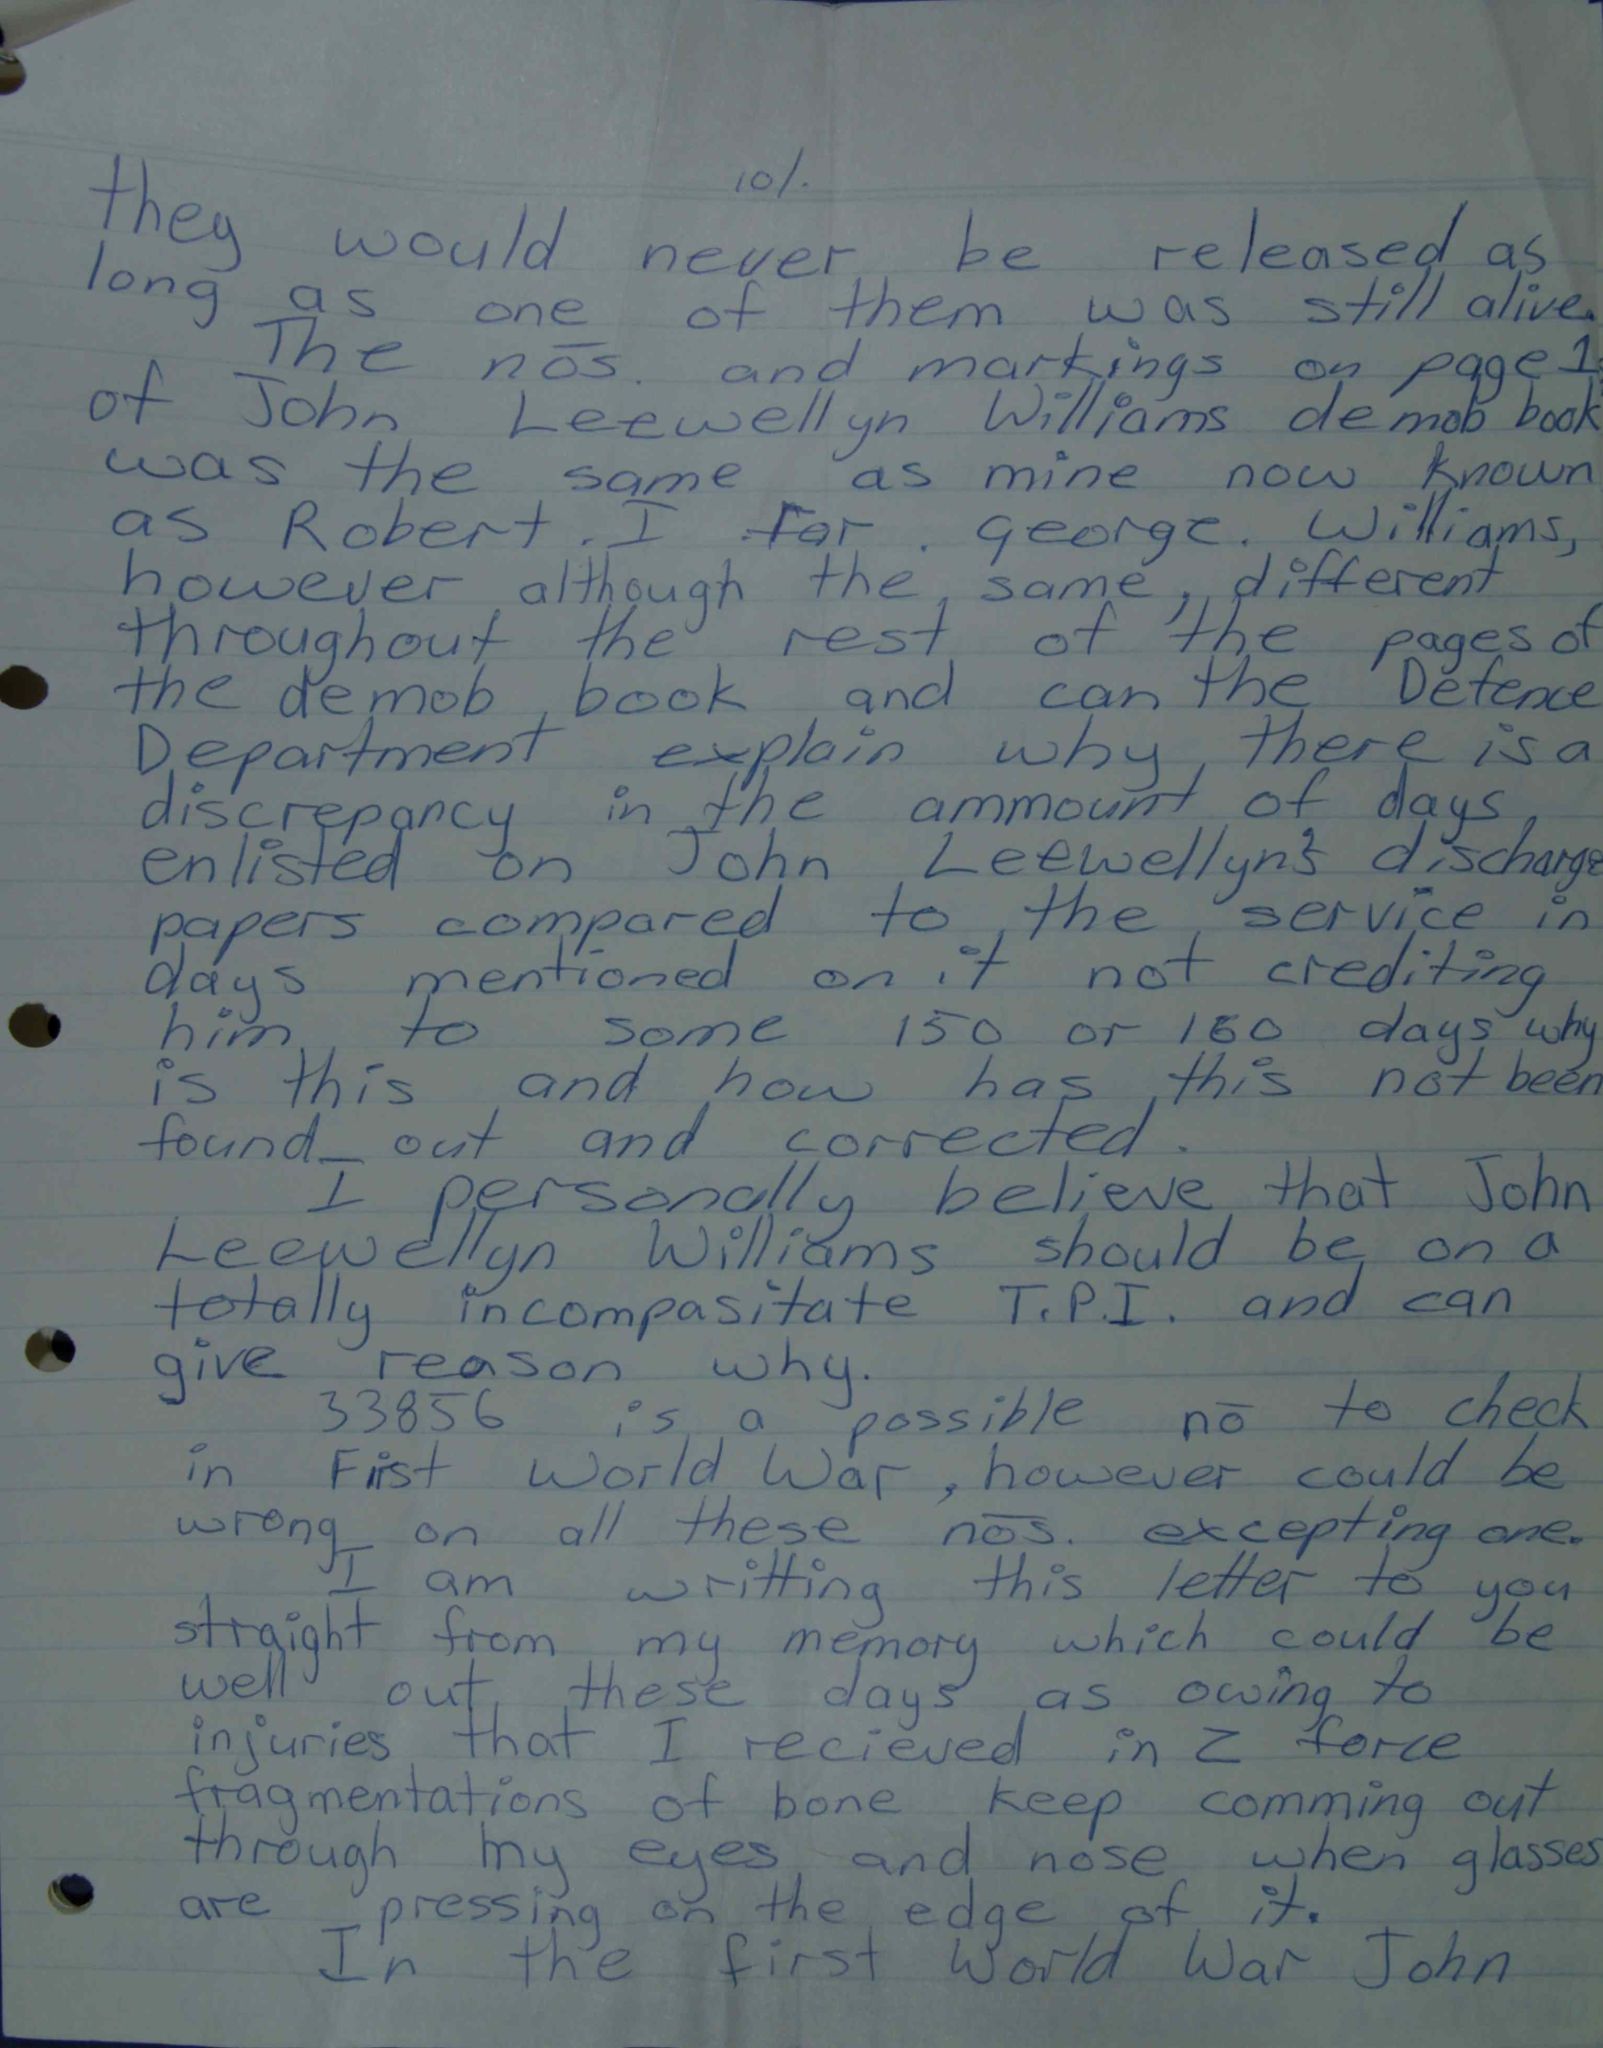 10/.
they would never be released as
long as one of them was still alive.
The nōs. and markings on page 1
of John Leewellyn Williams demob book
was the same as mine now known
as Robert. I for. george. Williams,
however although the same, different
throughout the rest of the pages of
the demob book and can the Defence
Department explain why there is a
discrepancy in the ammount of days
enlisted on John Leewellyn's discharge
papers compared to the service in
days mentioned on it not crediting
him to some 150 or 160 days why
is this and how has this not been
found out and corrected.
I personally believe that John
Leewellyn Williams should be on a
totally incompasitate T.P.I. and can
give reason why.
33856 is a possible nō to check
in First World War, however could be
wrong on all these nōs. excepting one.
I am writting this letter to you
straight from my memory which could be
well out these days as owing to
injuries that I recieved in Z force
fragmentations of bone keep comming out
through my eyes and nose when glasses
are pressing on the edge of it.
In the first World War John